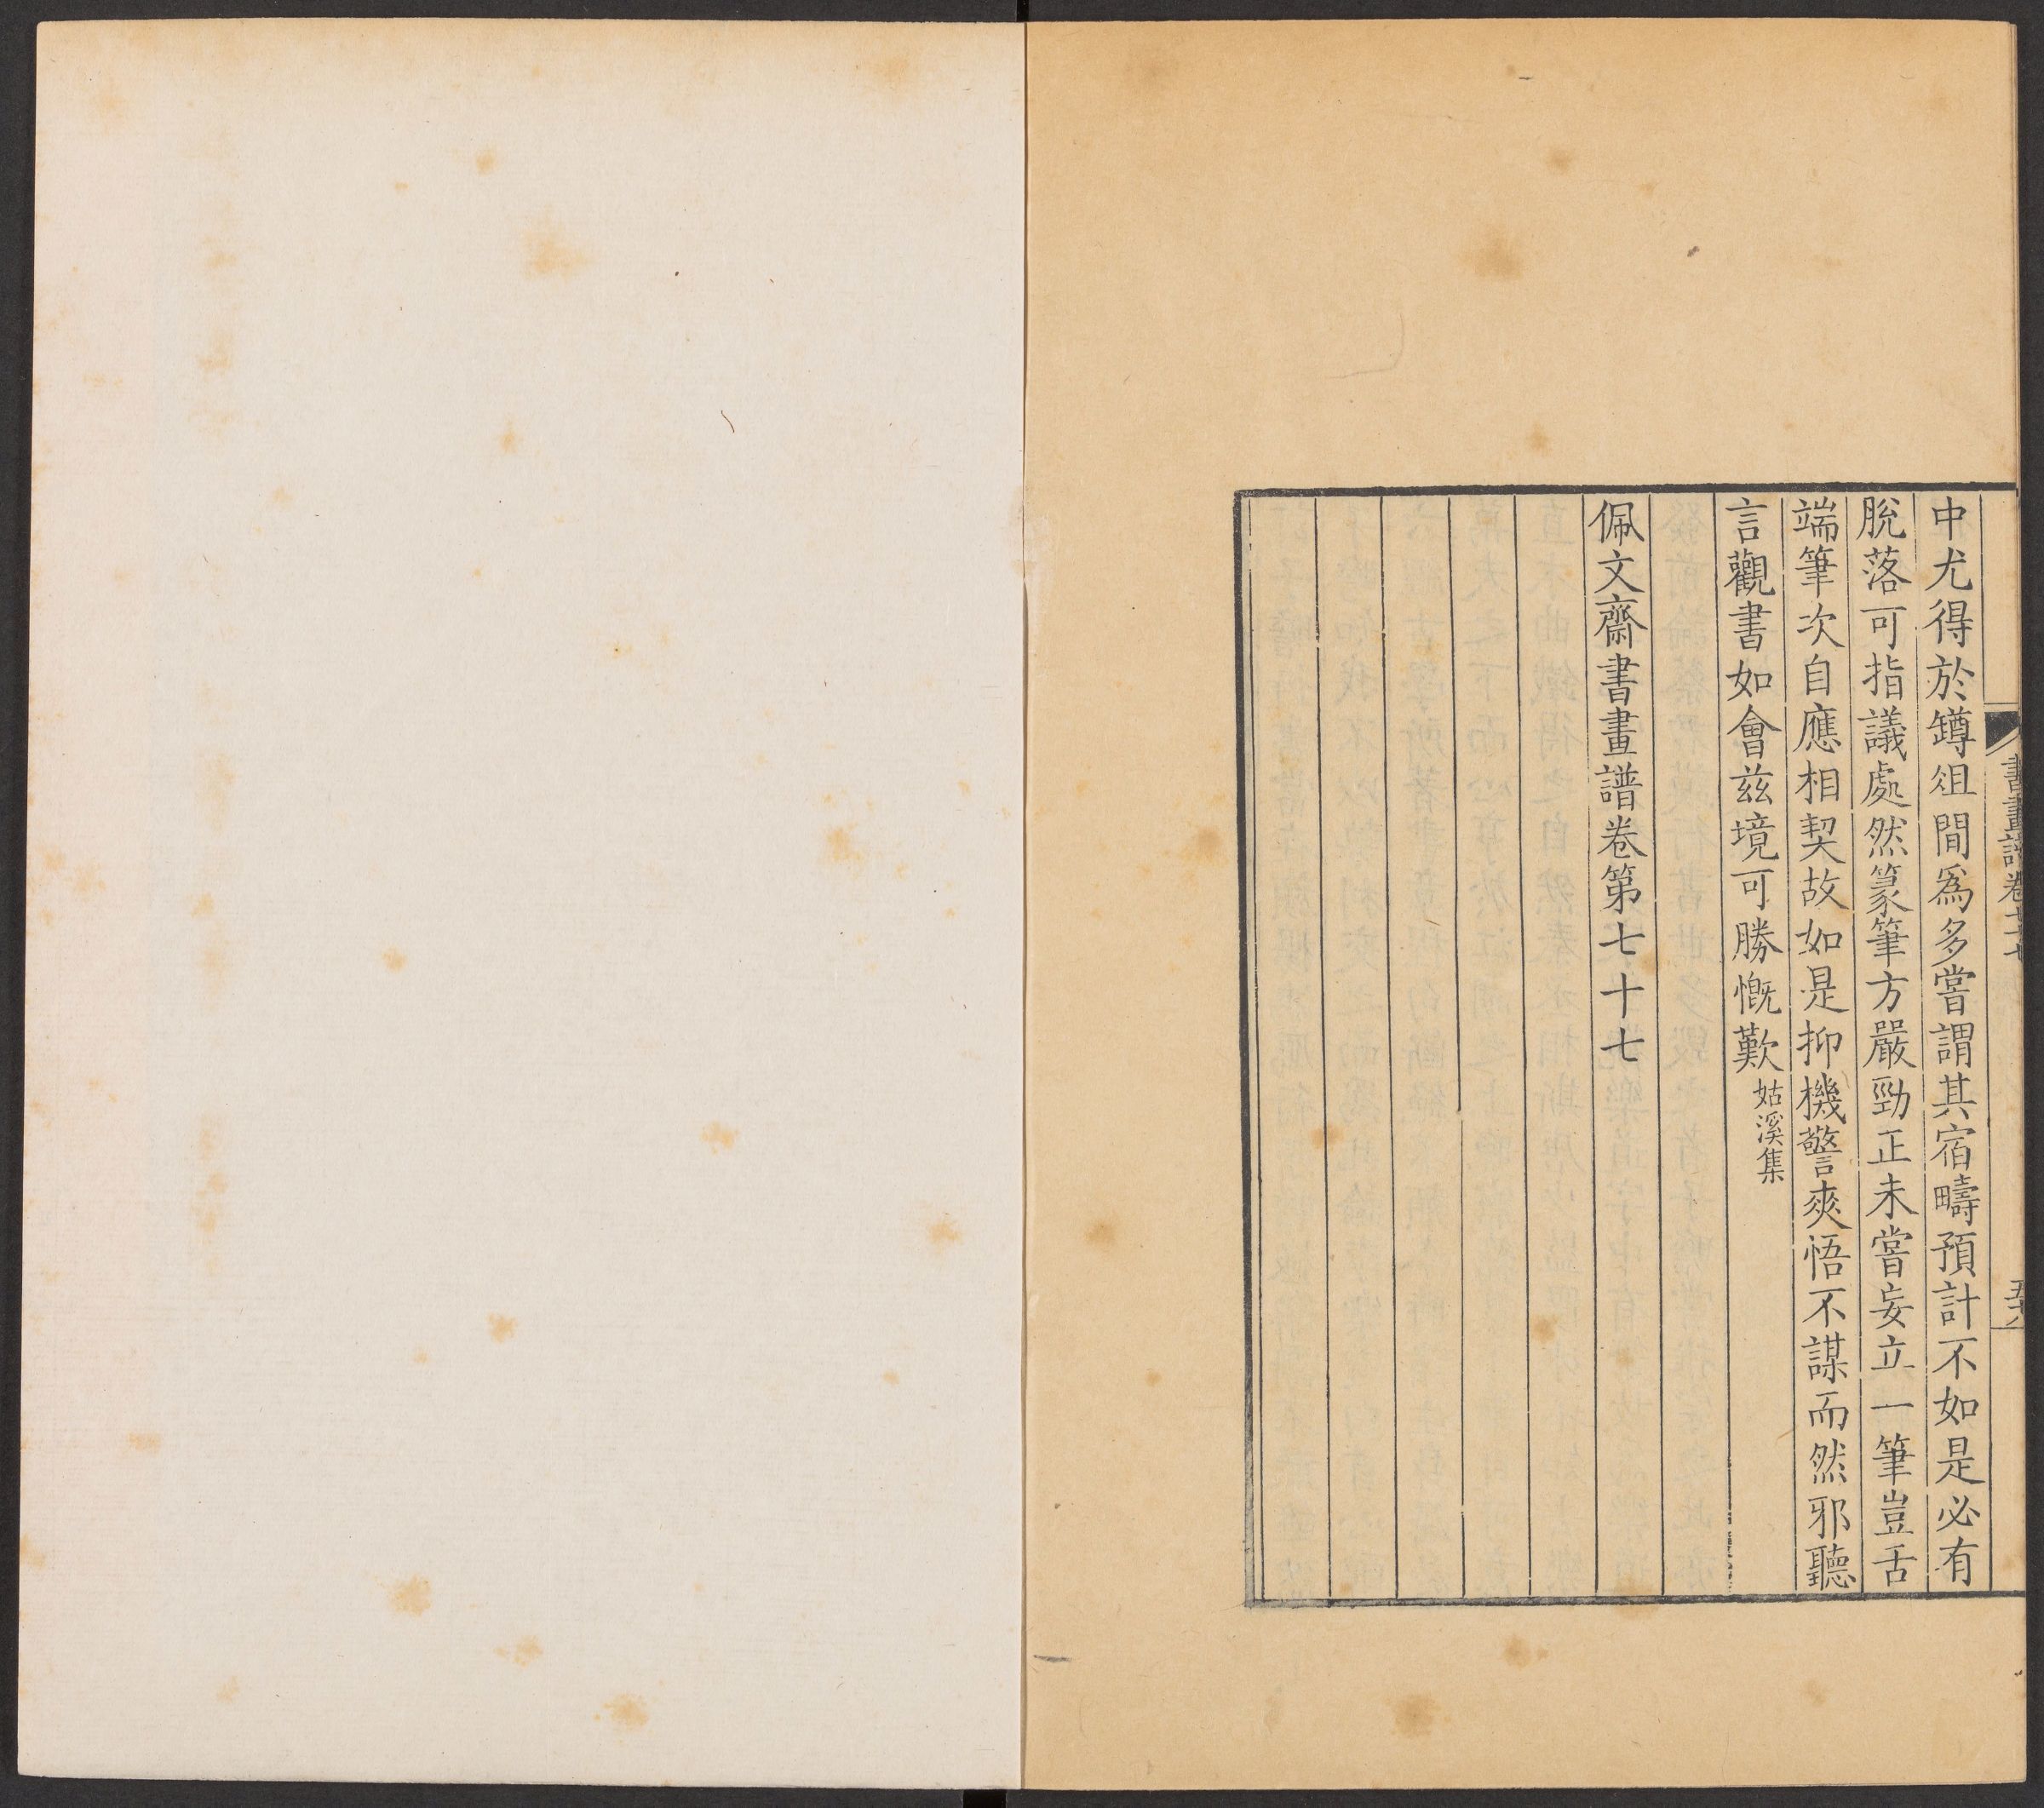 中尤得於罇俎間爲多嘗謂其宿疇預計不如是必有
脫落可指議處然篆筆方嚴勁正未嘗妄立一筆豈舌
端筆次自應相契故如是抑機警爽悟不謀而然邪聽
言觀書如會茲境可勝慨歎 姑溪集
佩文齋書畫譜卷第七十七
書畫譜卷七十七